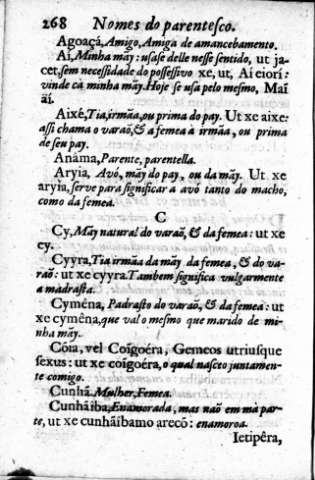 268 Nomes do parentesco.
Agoaçâ, Amigo, Amiga de amancebamento.
Ai, Minha mãy: usase delle nesse sentido, ut ja-
cet, sem necessidade do possessivo xe, ut, Ai eiorí:
vinde cá minha mãy. Hoje se usa pelo mesmo, Maĩ
ãí.
Aixé, Tia, irmãa, ou prima do pay. Ut xe aixe:
assi chama o varaõ, & a femea à irmãa, ou prima
de seu pay.
Anâma, Parente, parentella.
Aryia, Avó, mãy do pay, ou da mãy. Ut xe
aryìa, serve para significar a avó tanto do macho,
como da femea.
C
Cy, Mãy natural do varaõ, & da femea: ut xe
cy.
Cyyra, Tia irmãa da mãy da femea, & do va-
raõ: ut xe cyyra. Tambem significa vulgarmente
a madrasta.
Cyména, Padrasto do varaõ, & da femea: ut
xe cyména, que val o mesmo que marido de mi-
nha mãy.
Cóia, vel Coĩgoéra, Gemeos utriusque
sexus: ut xe coĩgoéra, o qual nasceo juntamen-
te comigo.
Cunhã. Mulher, Femea.
Cunhãíba, Enamorada, mas naõ em má par-
te, ut xe cunhãíbamo arecô: enamoroa.
Ietipêra,